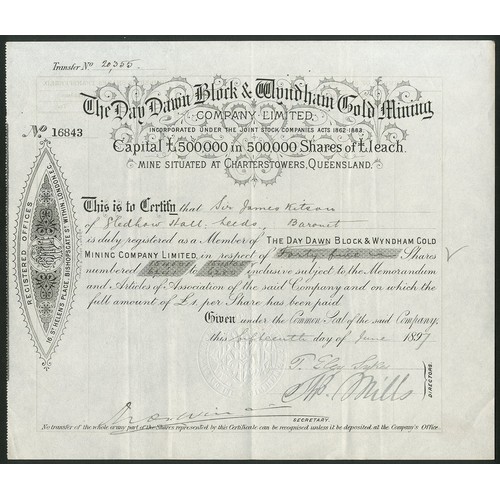 Transfer No 20,355
The Day Dawn Block & Wyndham Gold Mining
COMPANY LIMITED.
No 16843
INCORPORATED UNDER THE JOINT STOCK COMPANIES ACTS 1862-1883.
Capital £500,000 in 500,000 Shares of £1 each.
MINE SITUATED AT CHARTERSTOWERS, QUEENSLAND.
REGISTERED OFFICES
16, ST HELENS PLACE, BISHOPSGATE ST WITHIN, LONDON, E.C.
This is to Certify that Sir James Kitson
of Gledhow Hall, Leeds, Baronet
is duly registered as a Member of THE DAY DAWN BLOCK & WYNDHAM GOLD
MINING COMPANY LIMITED, in respect of Shares
numbered to inclusive subject to the Memorandum
and Articles of Association of the said Company and on which the
full amount of £1. per Share has been paid
Given under the Common Seal of the said Company,
this fifteenth day of June 1897
T. Eley Sykes
Mills
DIRECTORS.
SECRETARY.
No transfer of the whole or any part of the Shares represented by this Certificate can be recognised unless it be deposited at the Company's Office.